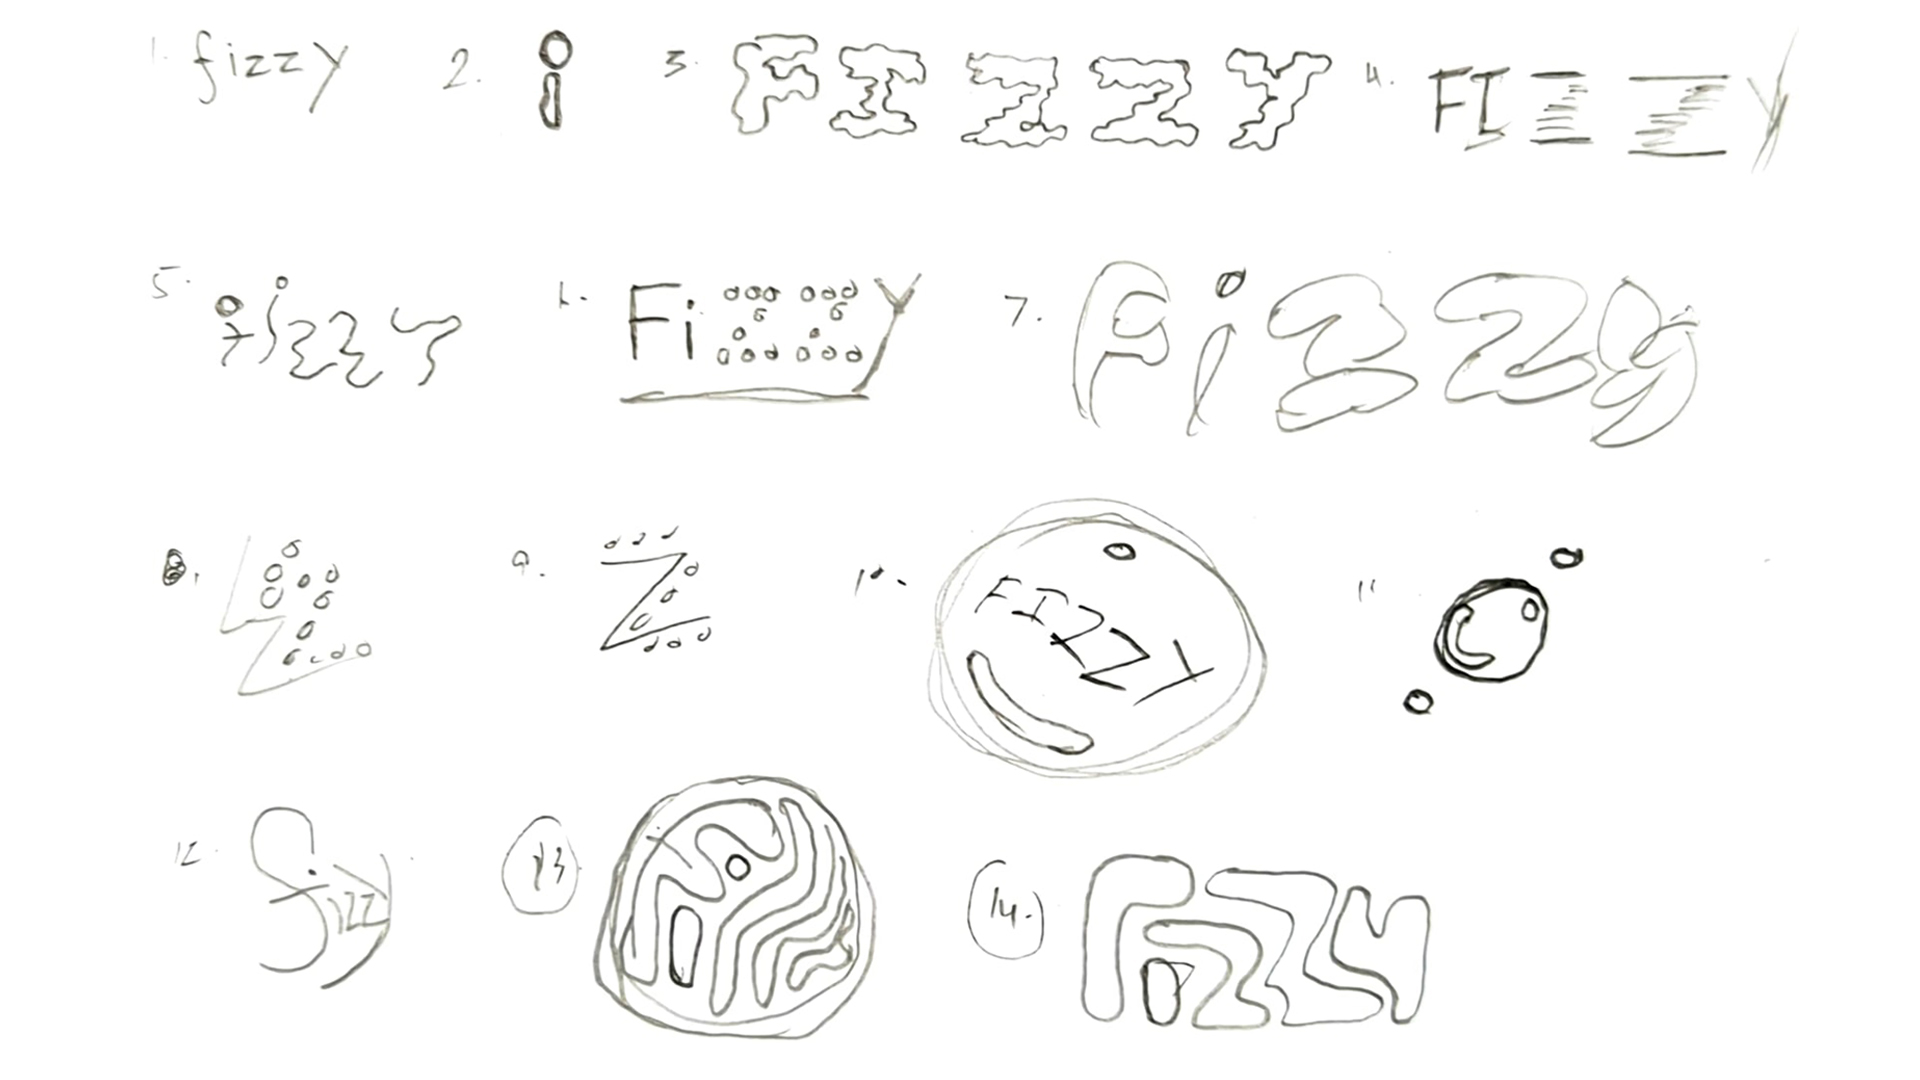 1. fizzy 2. i 3. FIZZY 4. FIZZY
5. fizzy 6. FiZZY 7. Fizzy
8. 9. Z 10. FIZZY 11
12. fizzy 13 14. FiZZY